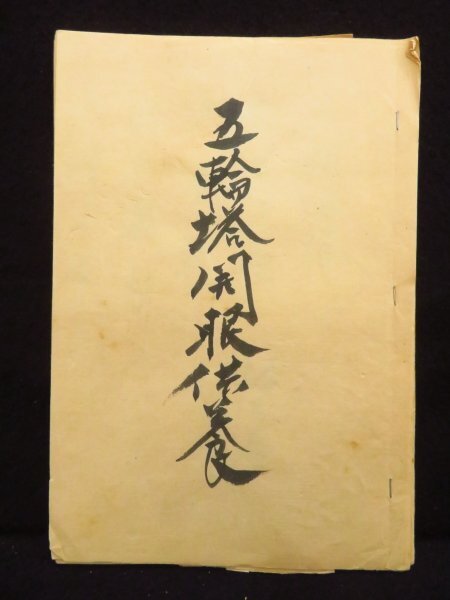 五輪塔開眼供養